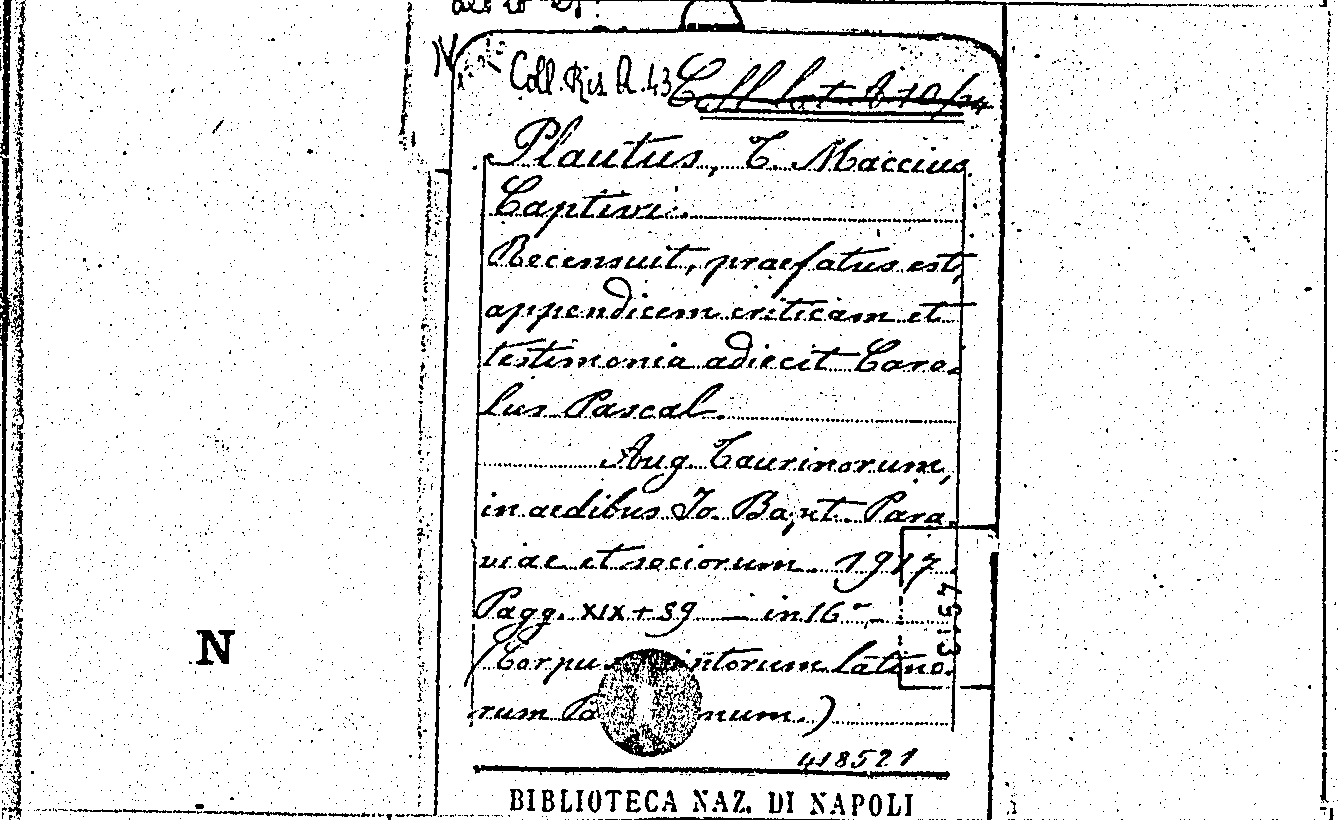 Coll. Ris. A. 43 Coll. Lat. A 10/24
Plautus, T. Maccius
Captivi.
Recensuit, praefatus est,
appendicem criticam et
testimonia adiecit Caro-
lus Pascal.
Aug. Taurinorum,
in aedibus Io. Bapt. Para-
viae et sociorum. 1917.
Pagg. XIX + 59 — in 16º —
(Corpus latino-
rum
418521
BIBLIOTECA NAZ. DI NAPOLI
N